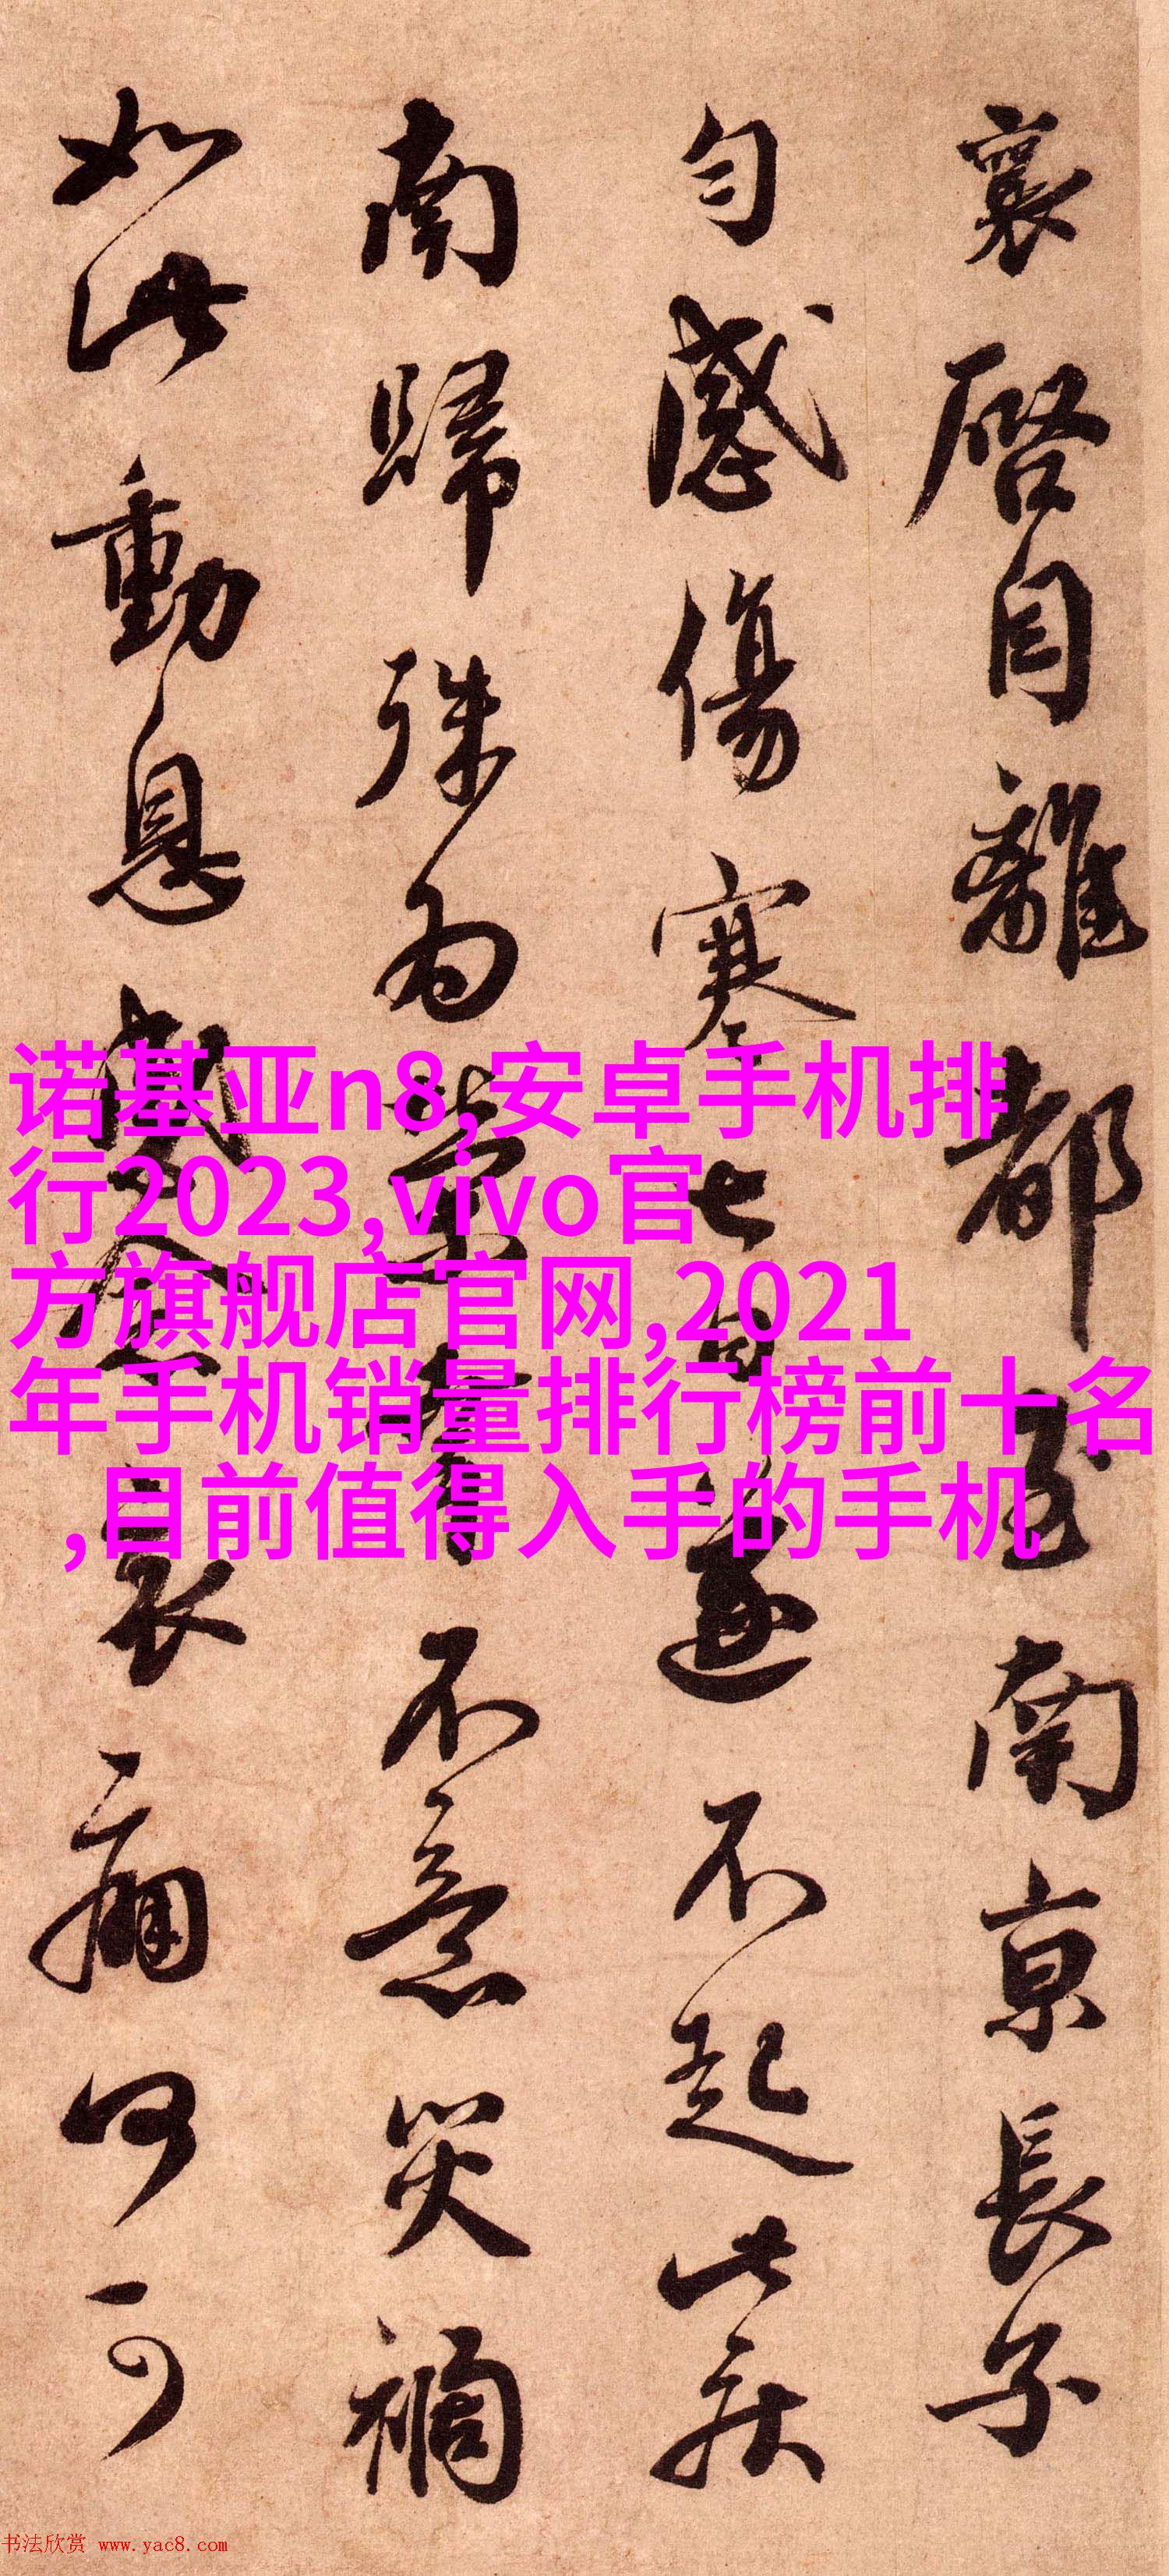 襄啓自離都至南京長子
匀感傷寒七日遂不起此疾
南歸殊為榮幸不意災禍
如此動息感念哀痛何可
诺基亚n8,安卓手机排
行2023,vivo官
方旗舰店官网,2021
年手机销量排行榜前十名
,目前值得入手的手机
书法欣赏 www.yac8.com